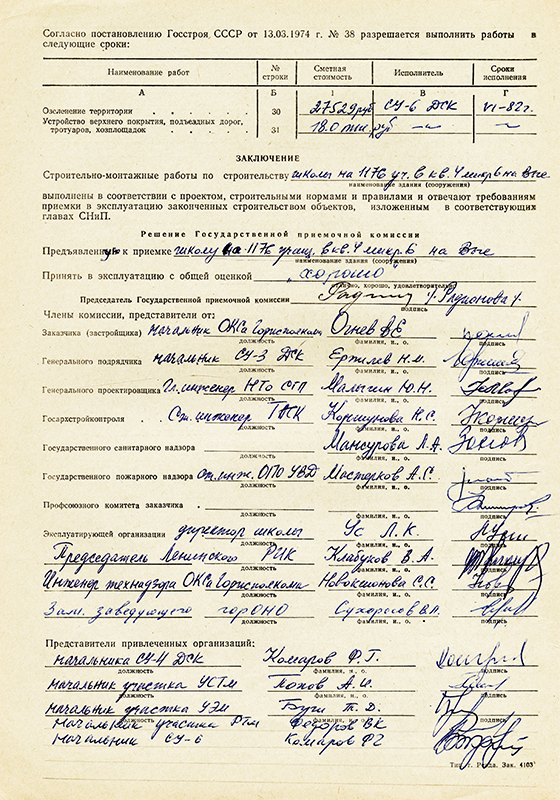 Согласно постановлению Госстроя СССР от 13.03.1974 г. № 38 разрешается выполнить работы в
следующие сроки:
Наименование работ № строки Сметная стоимость Исполнитель Сроки исполнения
А Б 1 В Г
Озеленение территории . . . . . 30 27529 руб СУ-6 ДСК VI-82г.
Устройство верхнего покрытия, подъездных дорог,
тротуаров, хозплощадок . . . . . 31 18.0 тыс руб —„— —„—
ЗАКЛЮЧЕНИЕ
Строительно-монтажные работы по строительству школы на 1176 уч. в кв. 4 мкр 6 на
наименование здания (сооружения)
выполнены в соответствии с проектом, строительными нормами и правилами и отвечают требованиям
приемки в эксплуатацию законченных строительством объектов, изложенным в соответствующих
главах СНиП.
Решение Государственной приемочной комиссии
Предъявленную к приемке школу на 1176 учащ. в кв. 4 мкр. 6 на
наименование здания (сооружения)
Принять в эксплуатацию с общей оценкой „хорошо"
отлично, хорошо, удовлетворительно
Председатель Государственной приемочной комиссии Родионова
подпись
Члены комиссии, представители от:
Заказчика (застройщика) начальник ОКСа Горисполкома Огнев В.Е
должность фамилия, и., о. подпись
Генерального подрядчика начальник СУ-3 ДСК Ертилев Н.М.
должность фамилия, и., о. подпись
Генерального проектировщика Гл. инженер Малыгин Ю.Н.
должность фамилия, и., о. подпись
Госархстройконтроля . . Ст. инженер ГАСК Коршунова К.С.
должность фамилия, и., о. подпись
Государственного санитарного надзора Мансурова Л.А.
должность фамилия, и., о. подпись
Государственного пожарного надзора ст. инж. ОПО УВД Мастерков А.С.
должность фамилия, и., о. подпись
Профсоюзного комитета заказчика .
должность фамилия, и., о. подпись
Эксплуатирующей организации директор школы Ус Л.К.
должность фамилия, и., о. подпись
Председатель Ленинского РИК Клабуков В.А.
должность фамилия, и., о. подпись
Инженер технадзора ОКСа Горисполкома Новоксионова С.С.
должность фамилия, и., о. подпись
Зам. заведующего горОНО
должность фамилия, и., о. подпись
Представители привлеченных организаций:
начальника СУ-4 ДСК Комаров Ф.Г.
должность фамилия, и., о. подпись
начальник участка УСТМ Попов А.И.
должность фамилия, и., о. подпись
начальник участка УЭМ Т.Д.
должность фамилия, и., о. подпись
начальник участка РТМ Федоров В.К
начальник СУ-6 Комаров ФГ
Зак. 4103